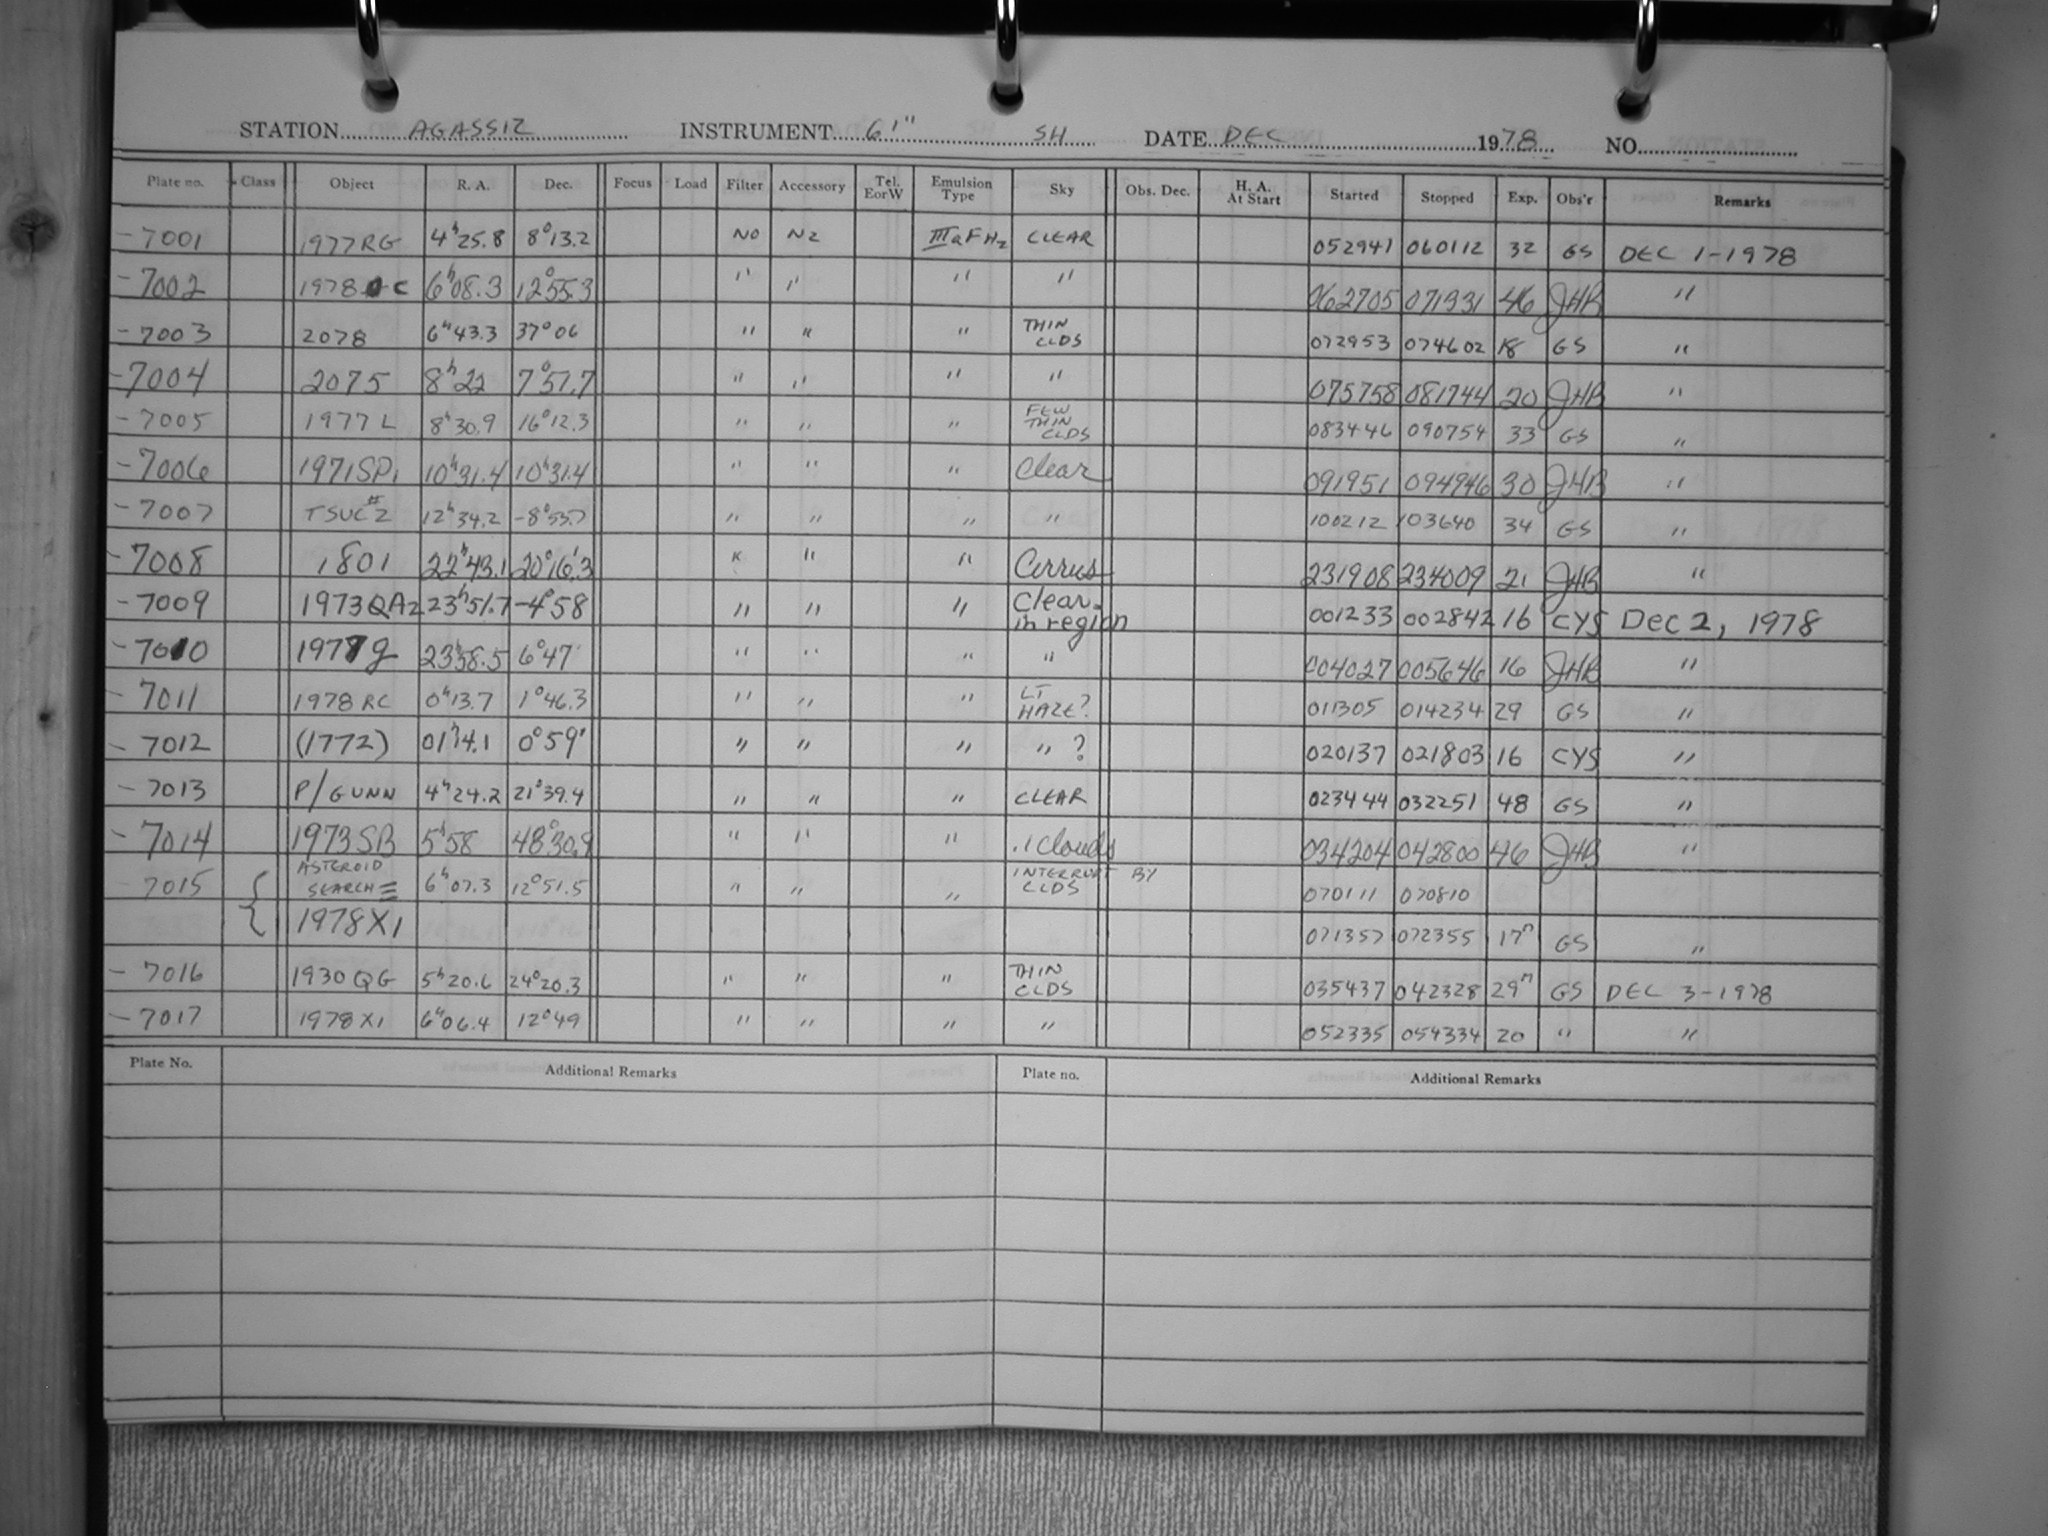 STATION AGASSIZ INSTRUMENT 61" SH DATE DEC 1978 NO.
Plate no. Class Object R. A. Dec. Focus Load Filter Accessory Tel. E or W Emulsion Type Sky Obs. Dec. H. A. At Start Started Stopped Exp. Obs'r Remarks
- 7001 1977RG 4h25.8 8°13.2 NO N2 IIIaFH2 CLEAR 052941 060112 32 GS DEC 1-1978
- 7002 1978 C 6h08.3 12°55.3 " " " " 062705 071331 46 JHB "
- 7003 2078 6h43.3 37°06 " " " THIN CLDS 072953 074602 18 GS "
- 7004 2075 8h22 7°57.7 " " " " 075758 081744 20 JHB "
- 7005 1977 L 8h30.9 16°12.3 " " " FEW THIN CLDS 083446 090754 33 GS "
- 7006 1971SP1 10h31.4 10h31.4 " " " Clear 091951 094946 30 JHB "
- 7007 TSUC#2 12h34.2 -8°53.7 " " " " 100212 103640 34 GS "
- 7008 1801 22h43.1 20°16.3 " " " Cirrus 231908 234009 21 JHB "
- 7009 1973QA2 23h51.7 -4°58 " " " Clear in region 001233 002842 16 CYS Dec 2, 1978
- 7010 1977g 23h58.5 6°47' " " " " 004027 005646 16 JHB "
- 7011 1978 RC 0h13.7 1°46.3 " " " LT HAZE? 011305 014234 29 GS "
- 7012 (1772) 01h4.1 0°59' " " " " ? 020137 021803 16 CYS "
- 7013 P/GUNN 4h24.2 21°39.4 " " " CLEAR 023444 032251 48 GS "
- 7014 1973SB 5h58 48°30.9 " " " .1 clouds 034204 042800 46 JHB "
- 7015 { ASTEROID SEARCH 6h07.3 12°51.5 " " " INTERRUPT BY CLDS 070111 070810
1978X1 071357 072355 17m GS "
- 7016 1930 QG 5h20.6 24°20.3 " " " THIN CLDS 035437 042328 29m GS DEC 3-1978
- 7017 1978 X1 6h06.4 12°49 " " " " 052335 054334 20 " "
Plate No. Additional Remarks Plate no. Additional Remarks